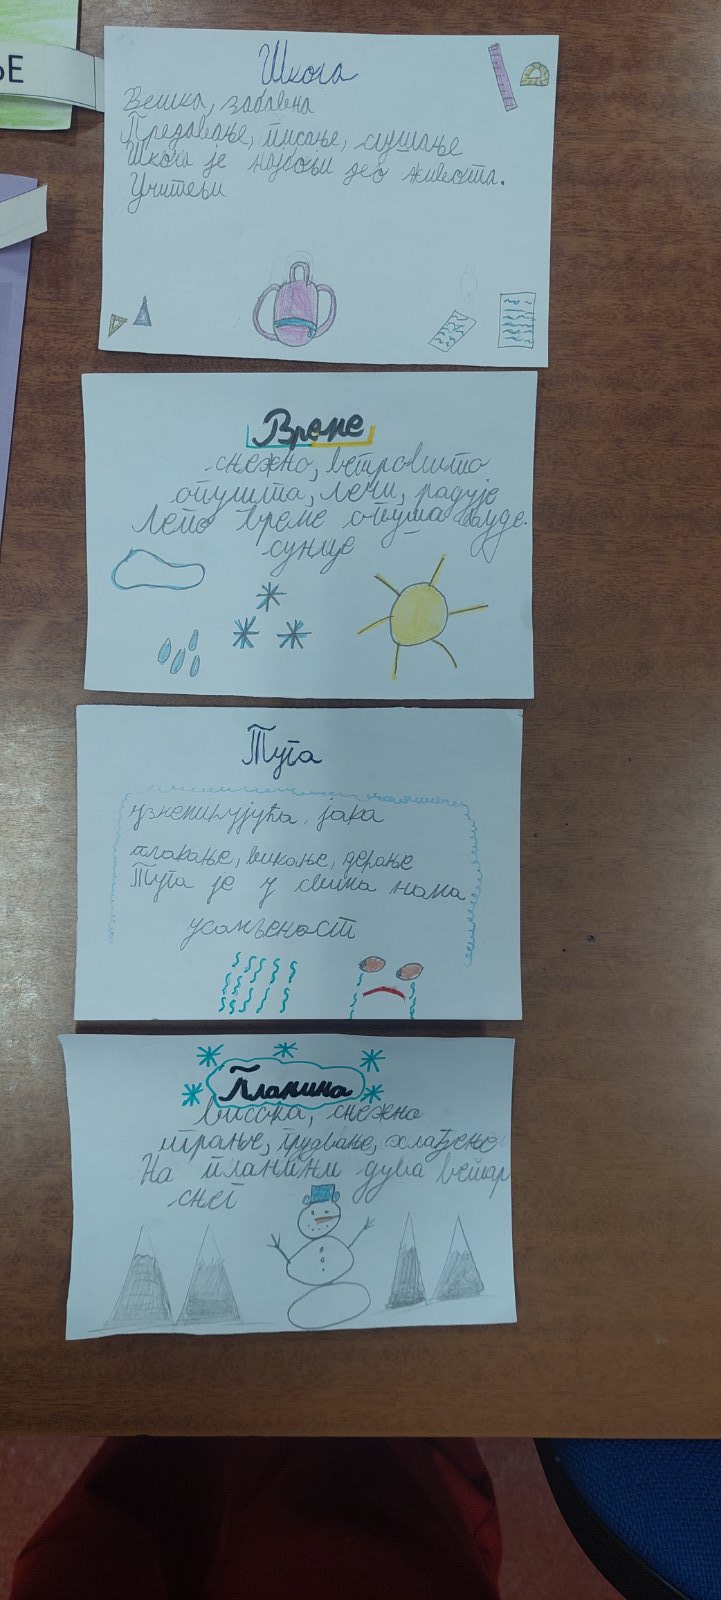 ЊЕ
Школа
Велика, забавна
Предавање, писање, слушање
Школа је најбољи део живота.
Учитељи
Време
снежно, ветровито
опушта, лечи, радује
Лепо време опушта људе.
сунце
Туга
узнемирујућа, јака
плакање, викање, дерање
Туга је у свима нама
усамљеност
Планина
висока, снежно
играње, грудвање, хлађење
На планини дува ветар
снег